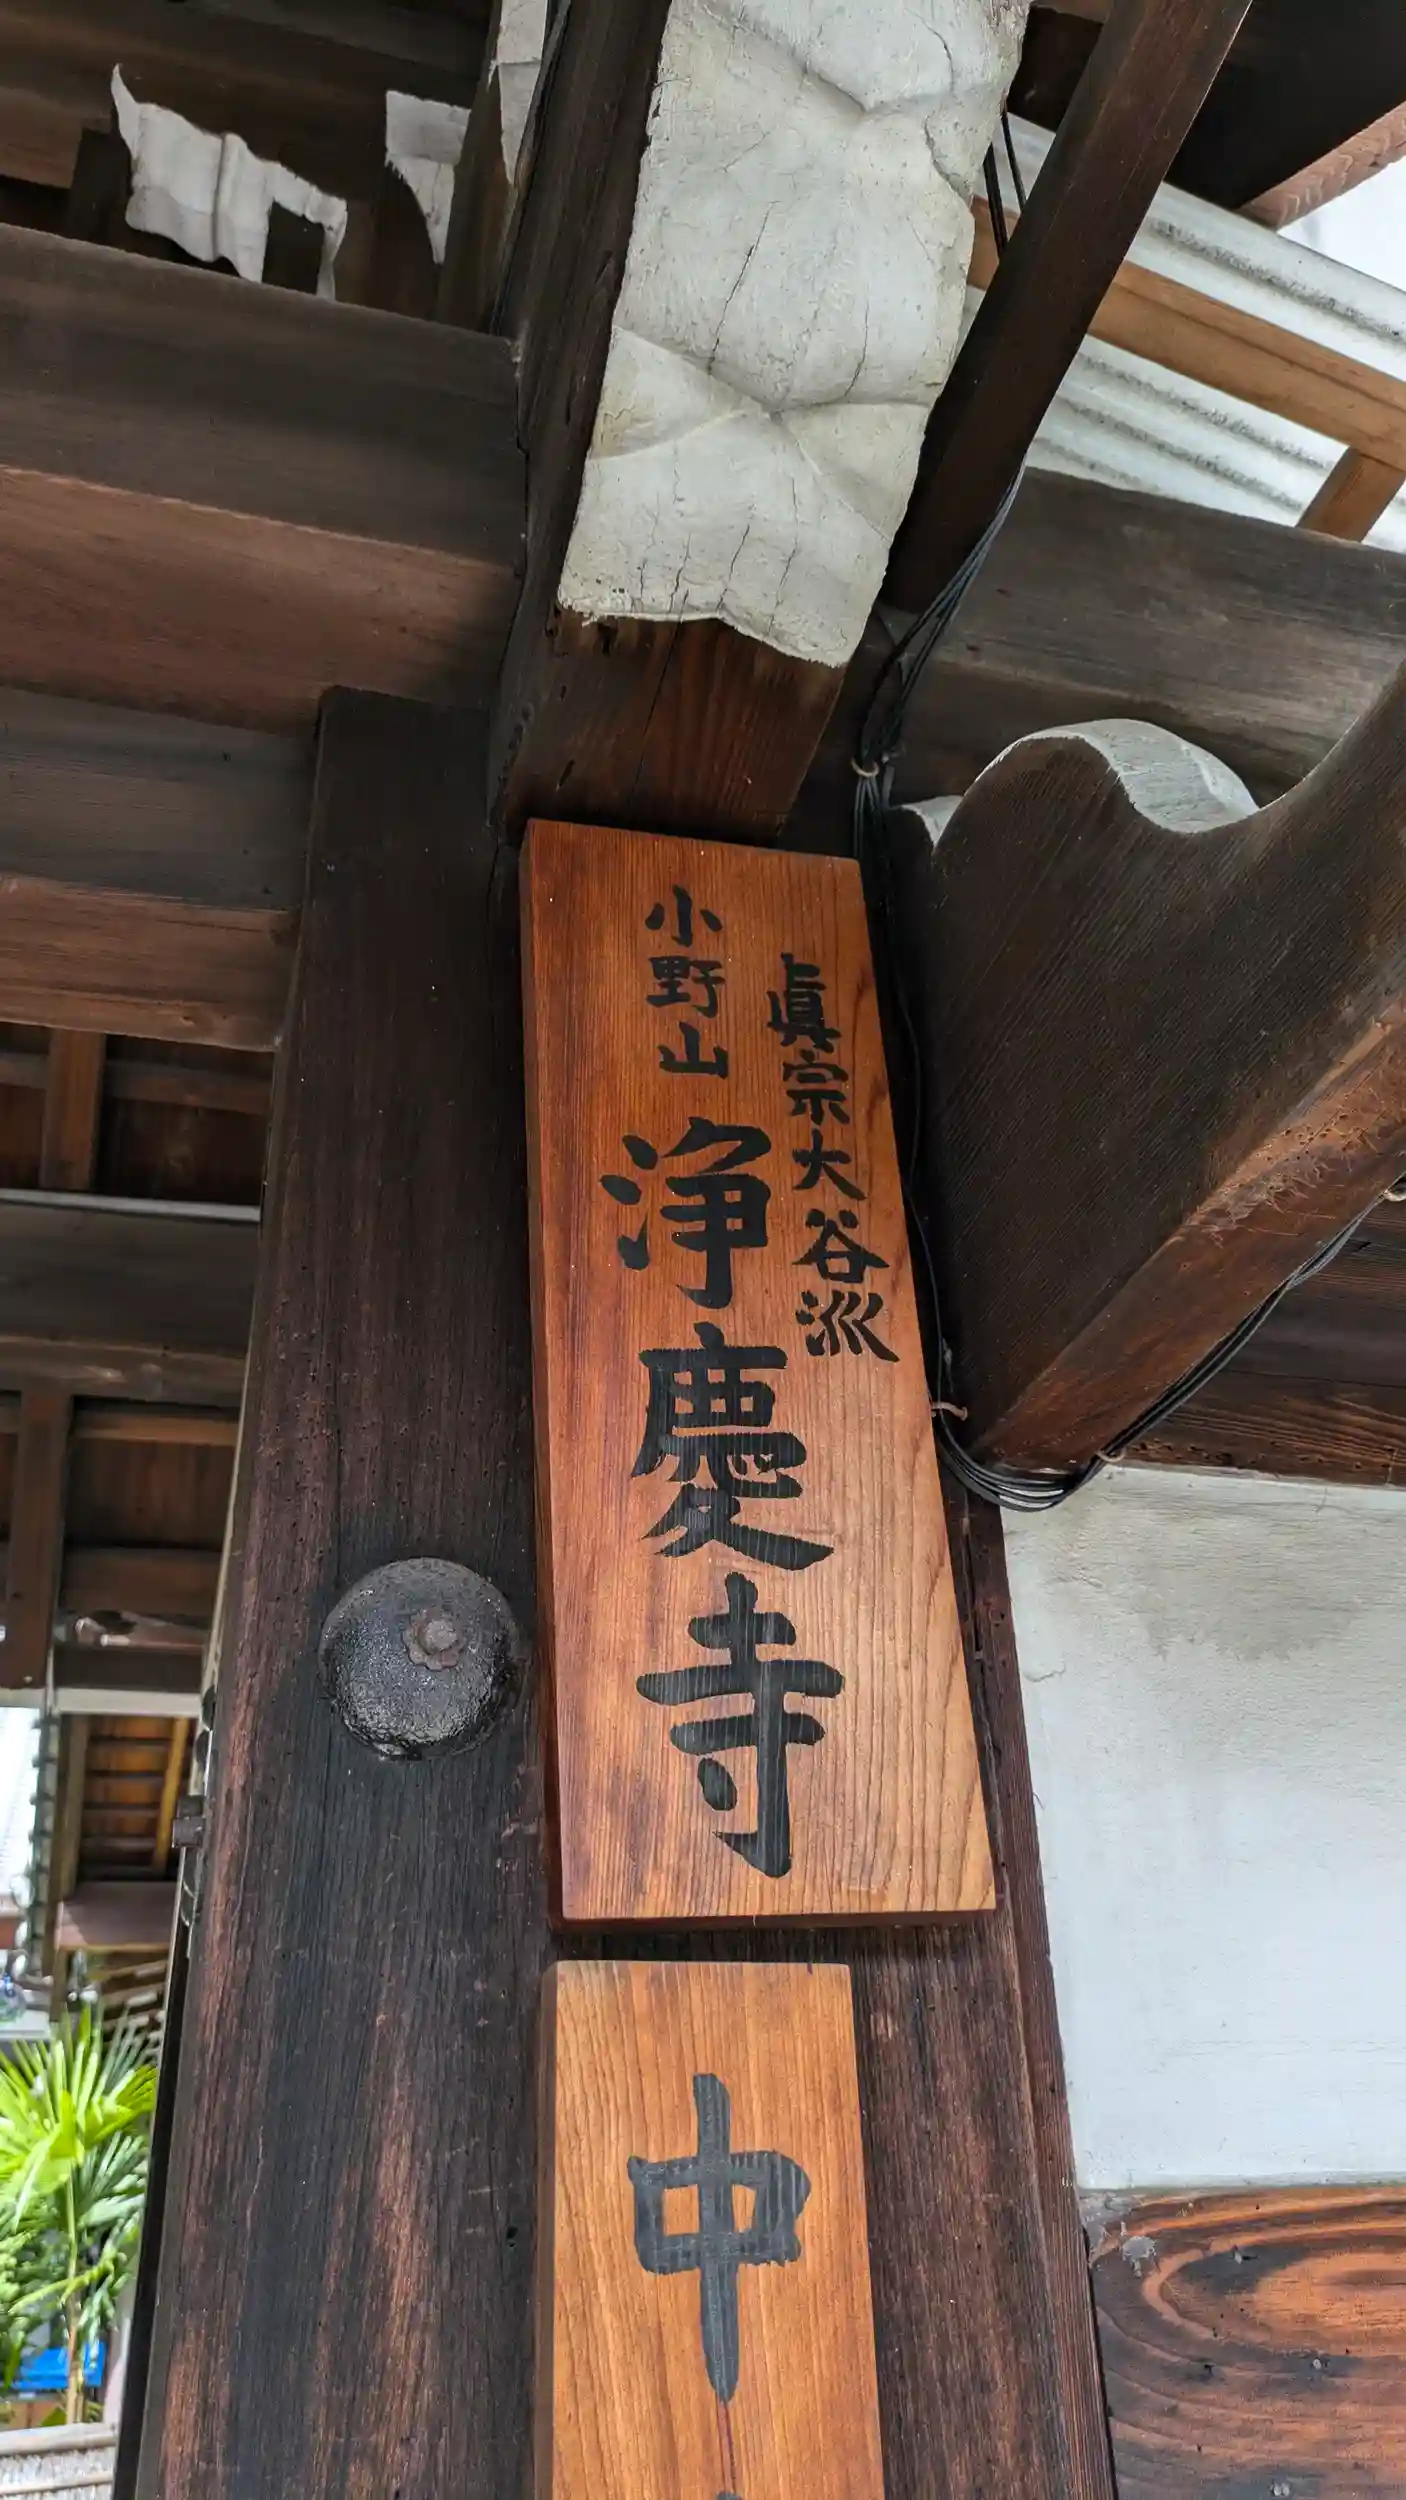 眞宗大谷派
小野山 浄慶寺
中